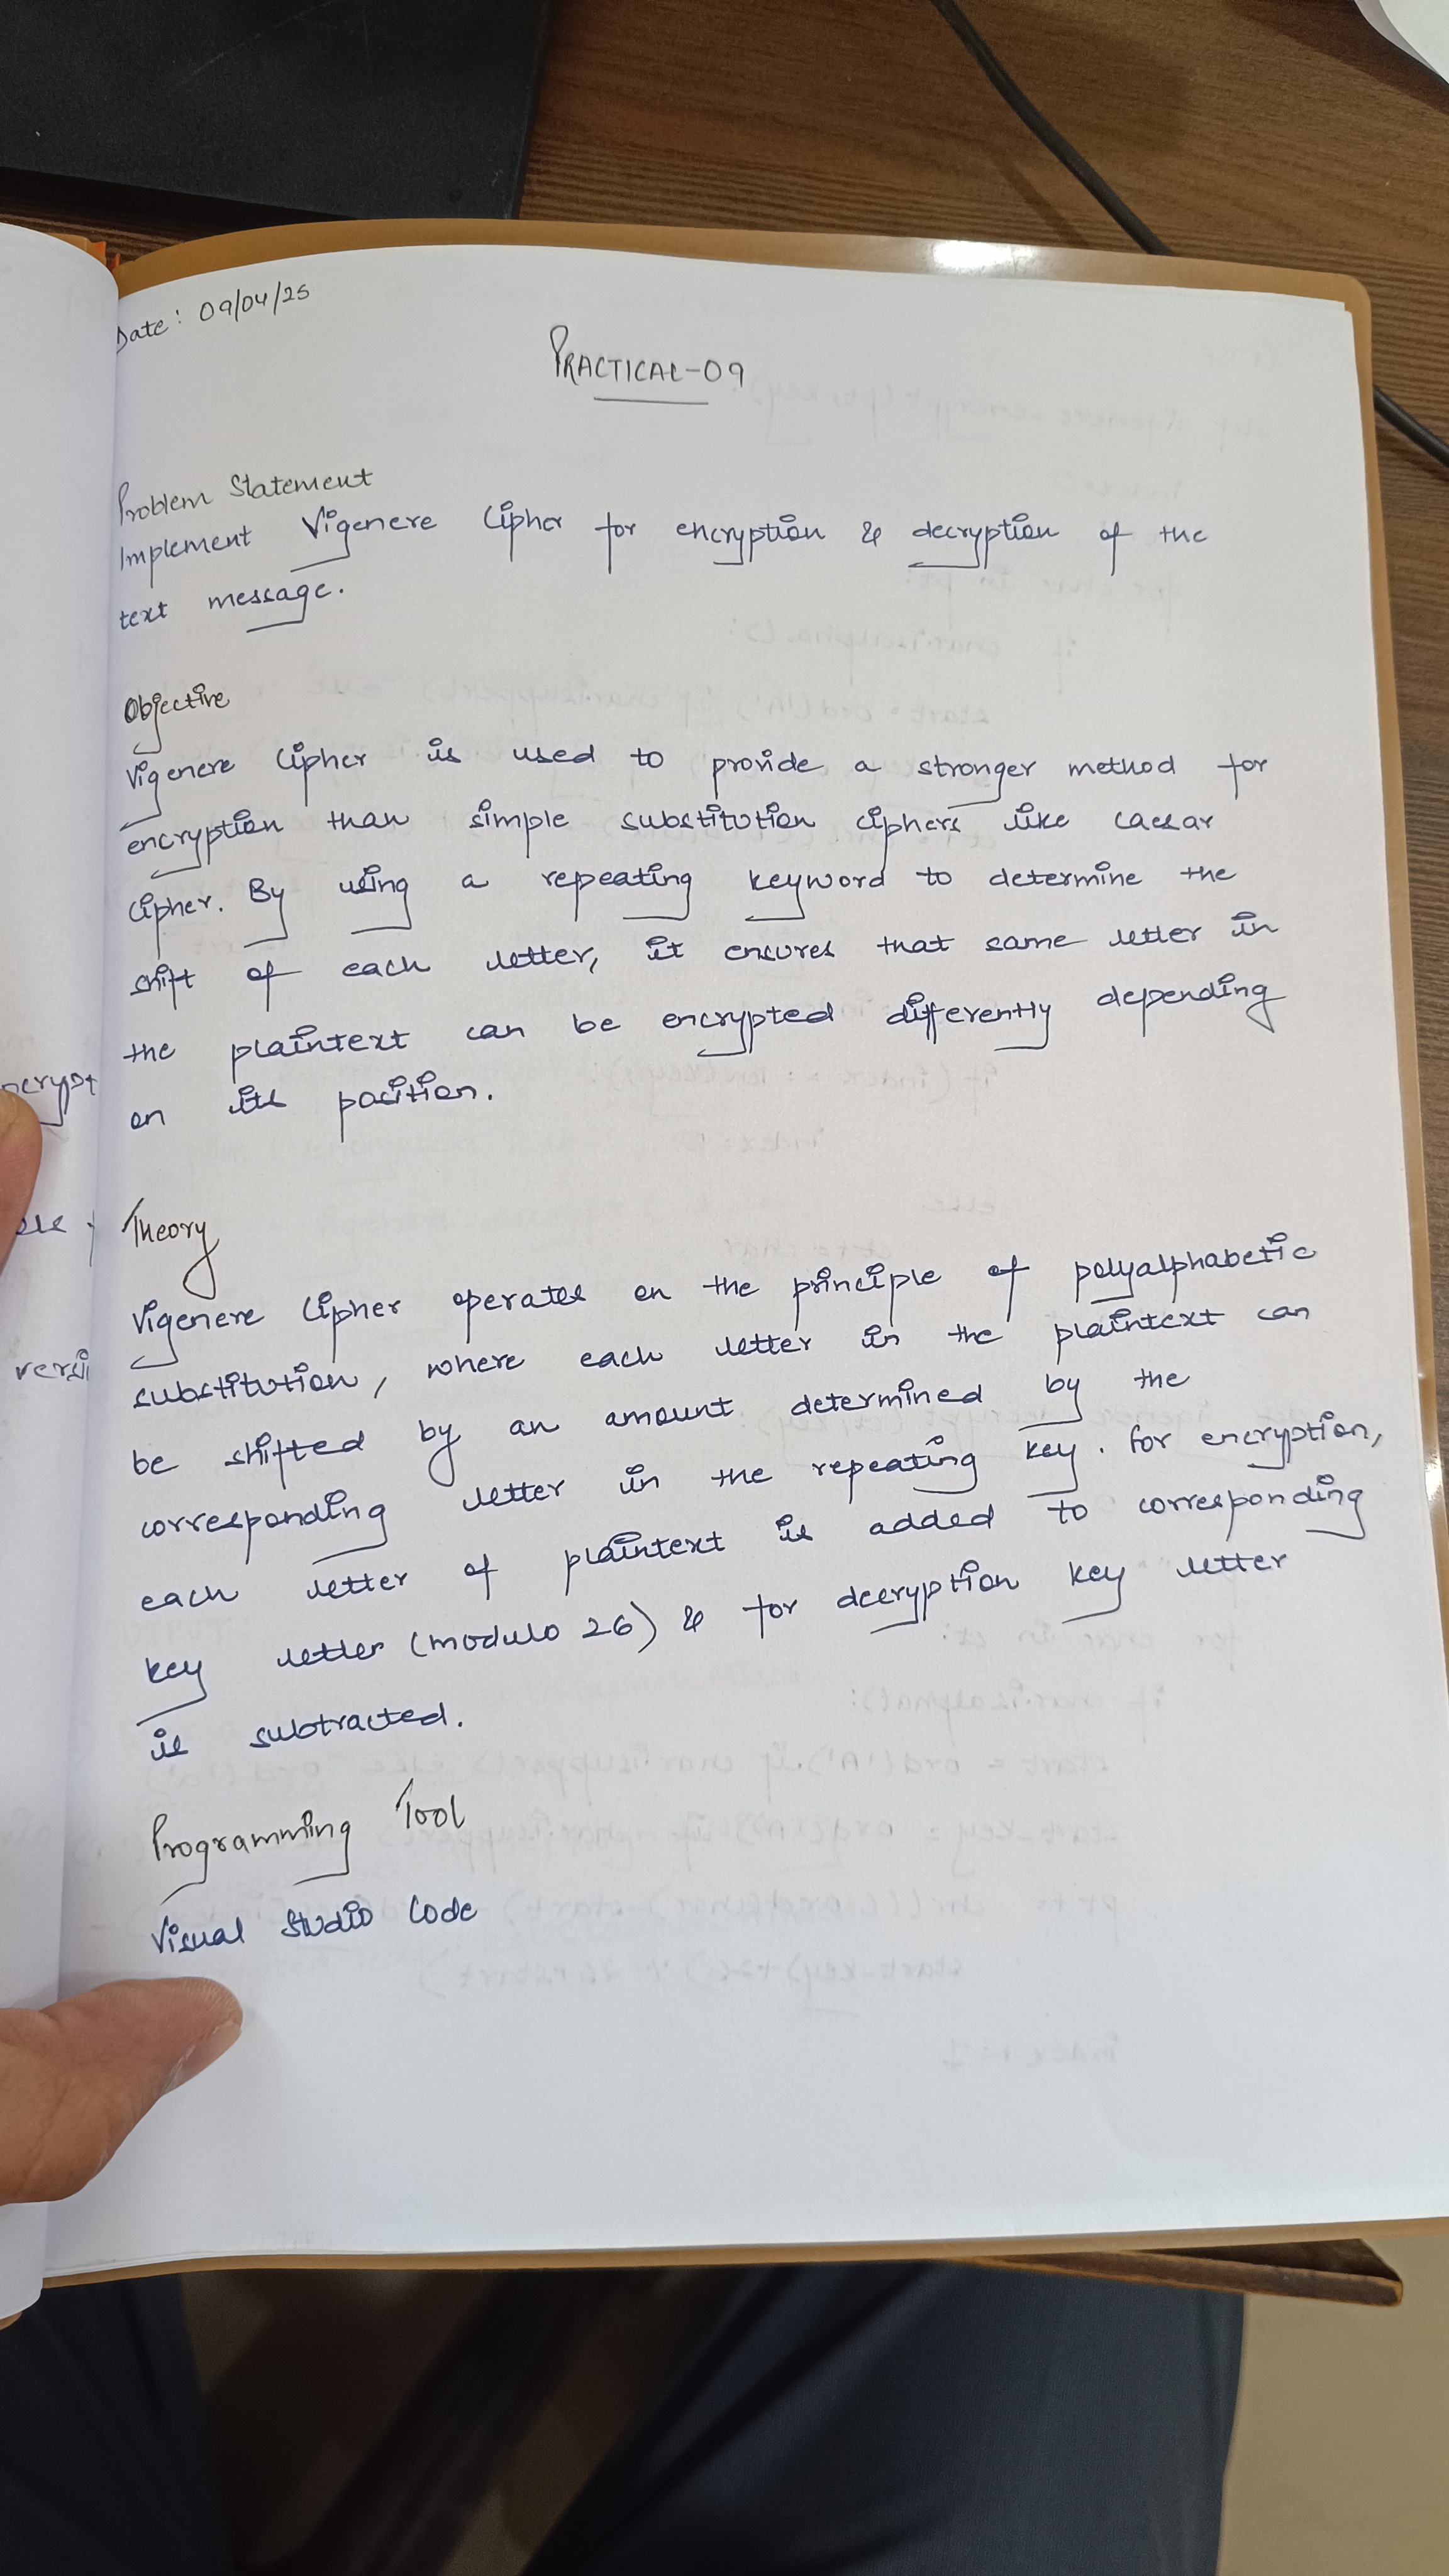 Date: 09/04/25
PRACTICAL-09
Problem Statement
Implement Vigenere Cipher for encryption & decryption of the
text message.
Objective
Vigenere Cipher is used to provide a stronger method for
encryption than simple substitution ciphers like caesar
Cipher. By using a repeating keyword to determine the
shift of each letter, it ensures that same letter in
the plaintext can be encrypted differently depending
on its position.
Theory
Vigenere Cipher operates on the principle of polyalphabetic
substitution, where each letter in the plaintext can
be shifted by an amount determined by the
corresponding letter in the repeating key. for encryption,
each letter of plaintext is added to corresponding
key letter (modulo 26) & for decryption key letter
is subtracted.
Programming Tool
Visual Studio Code